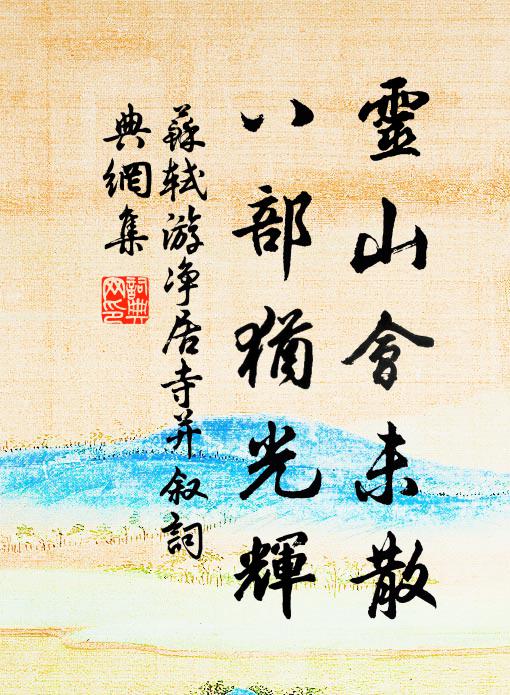 靈山會未散
八部猶光輝
蘇軾游净居寺并叙詞
典網集
詞典
网印